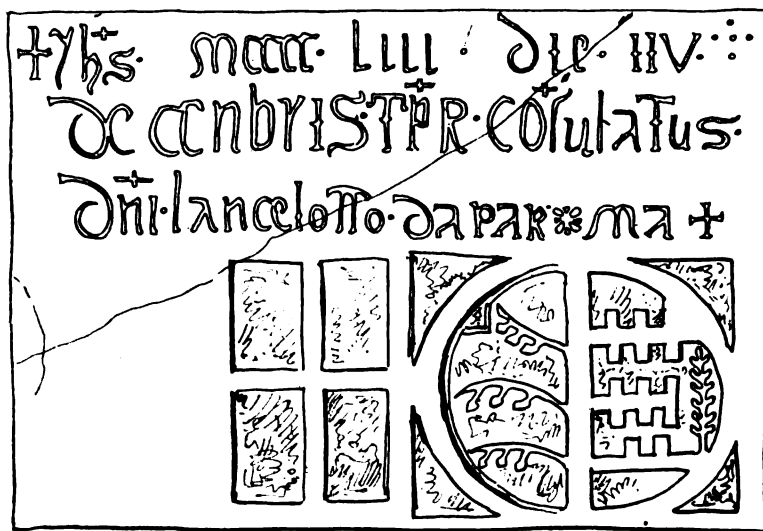 + yhs · mcccc · LIIII · die · IIV
decenbris · tpr · cosulatus ·
dni · lancelotto · da par※ma +